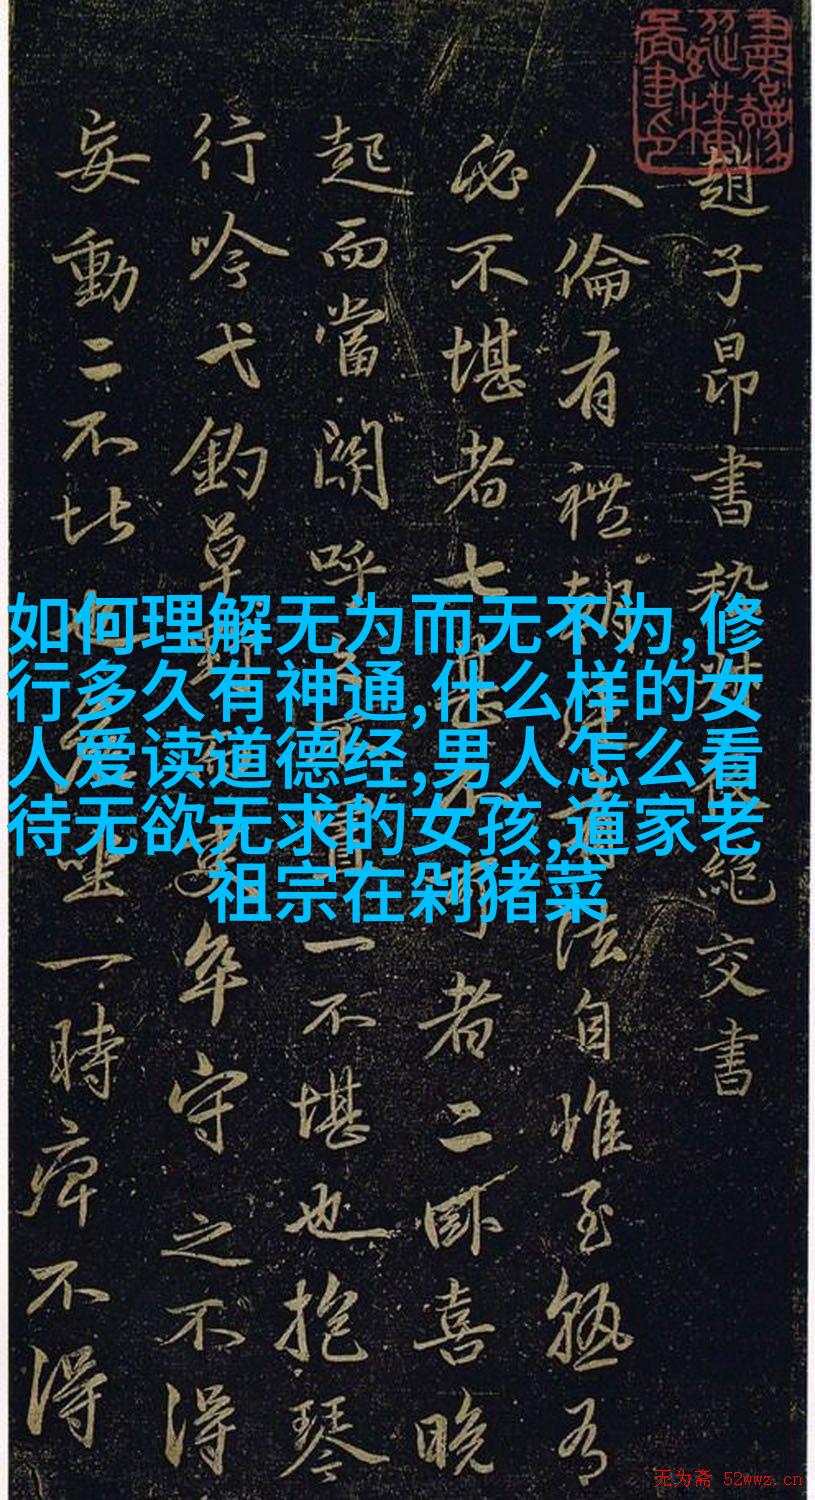 趙子昂書嵇叔夜絕交書
人倫有禮朝廷有法自惟至熟有
必不堪者七甚不可者二卧喜晚
起而當關呼之不置一不堪也抱琴
行吟弋釣草野而吏卒守之不得
妄動二不堪也危坐一時痹不得
如何理解无为而无不为,修
行多久有神通,什么样的女
人爱读道德经,男人怎么看
待无欲无求的女孩,道家老
祖宗在剁猪菜
无为斋 52wwz.cn